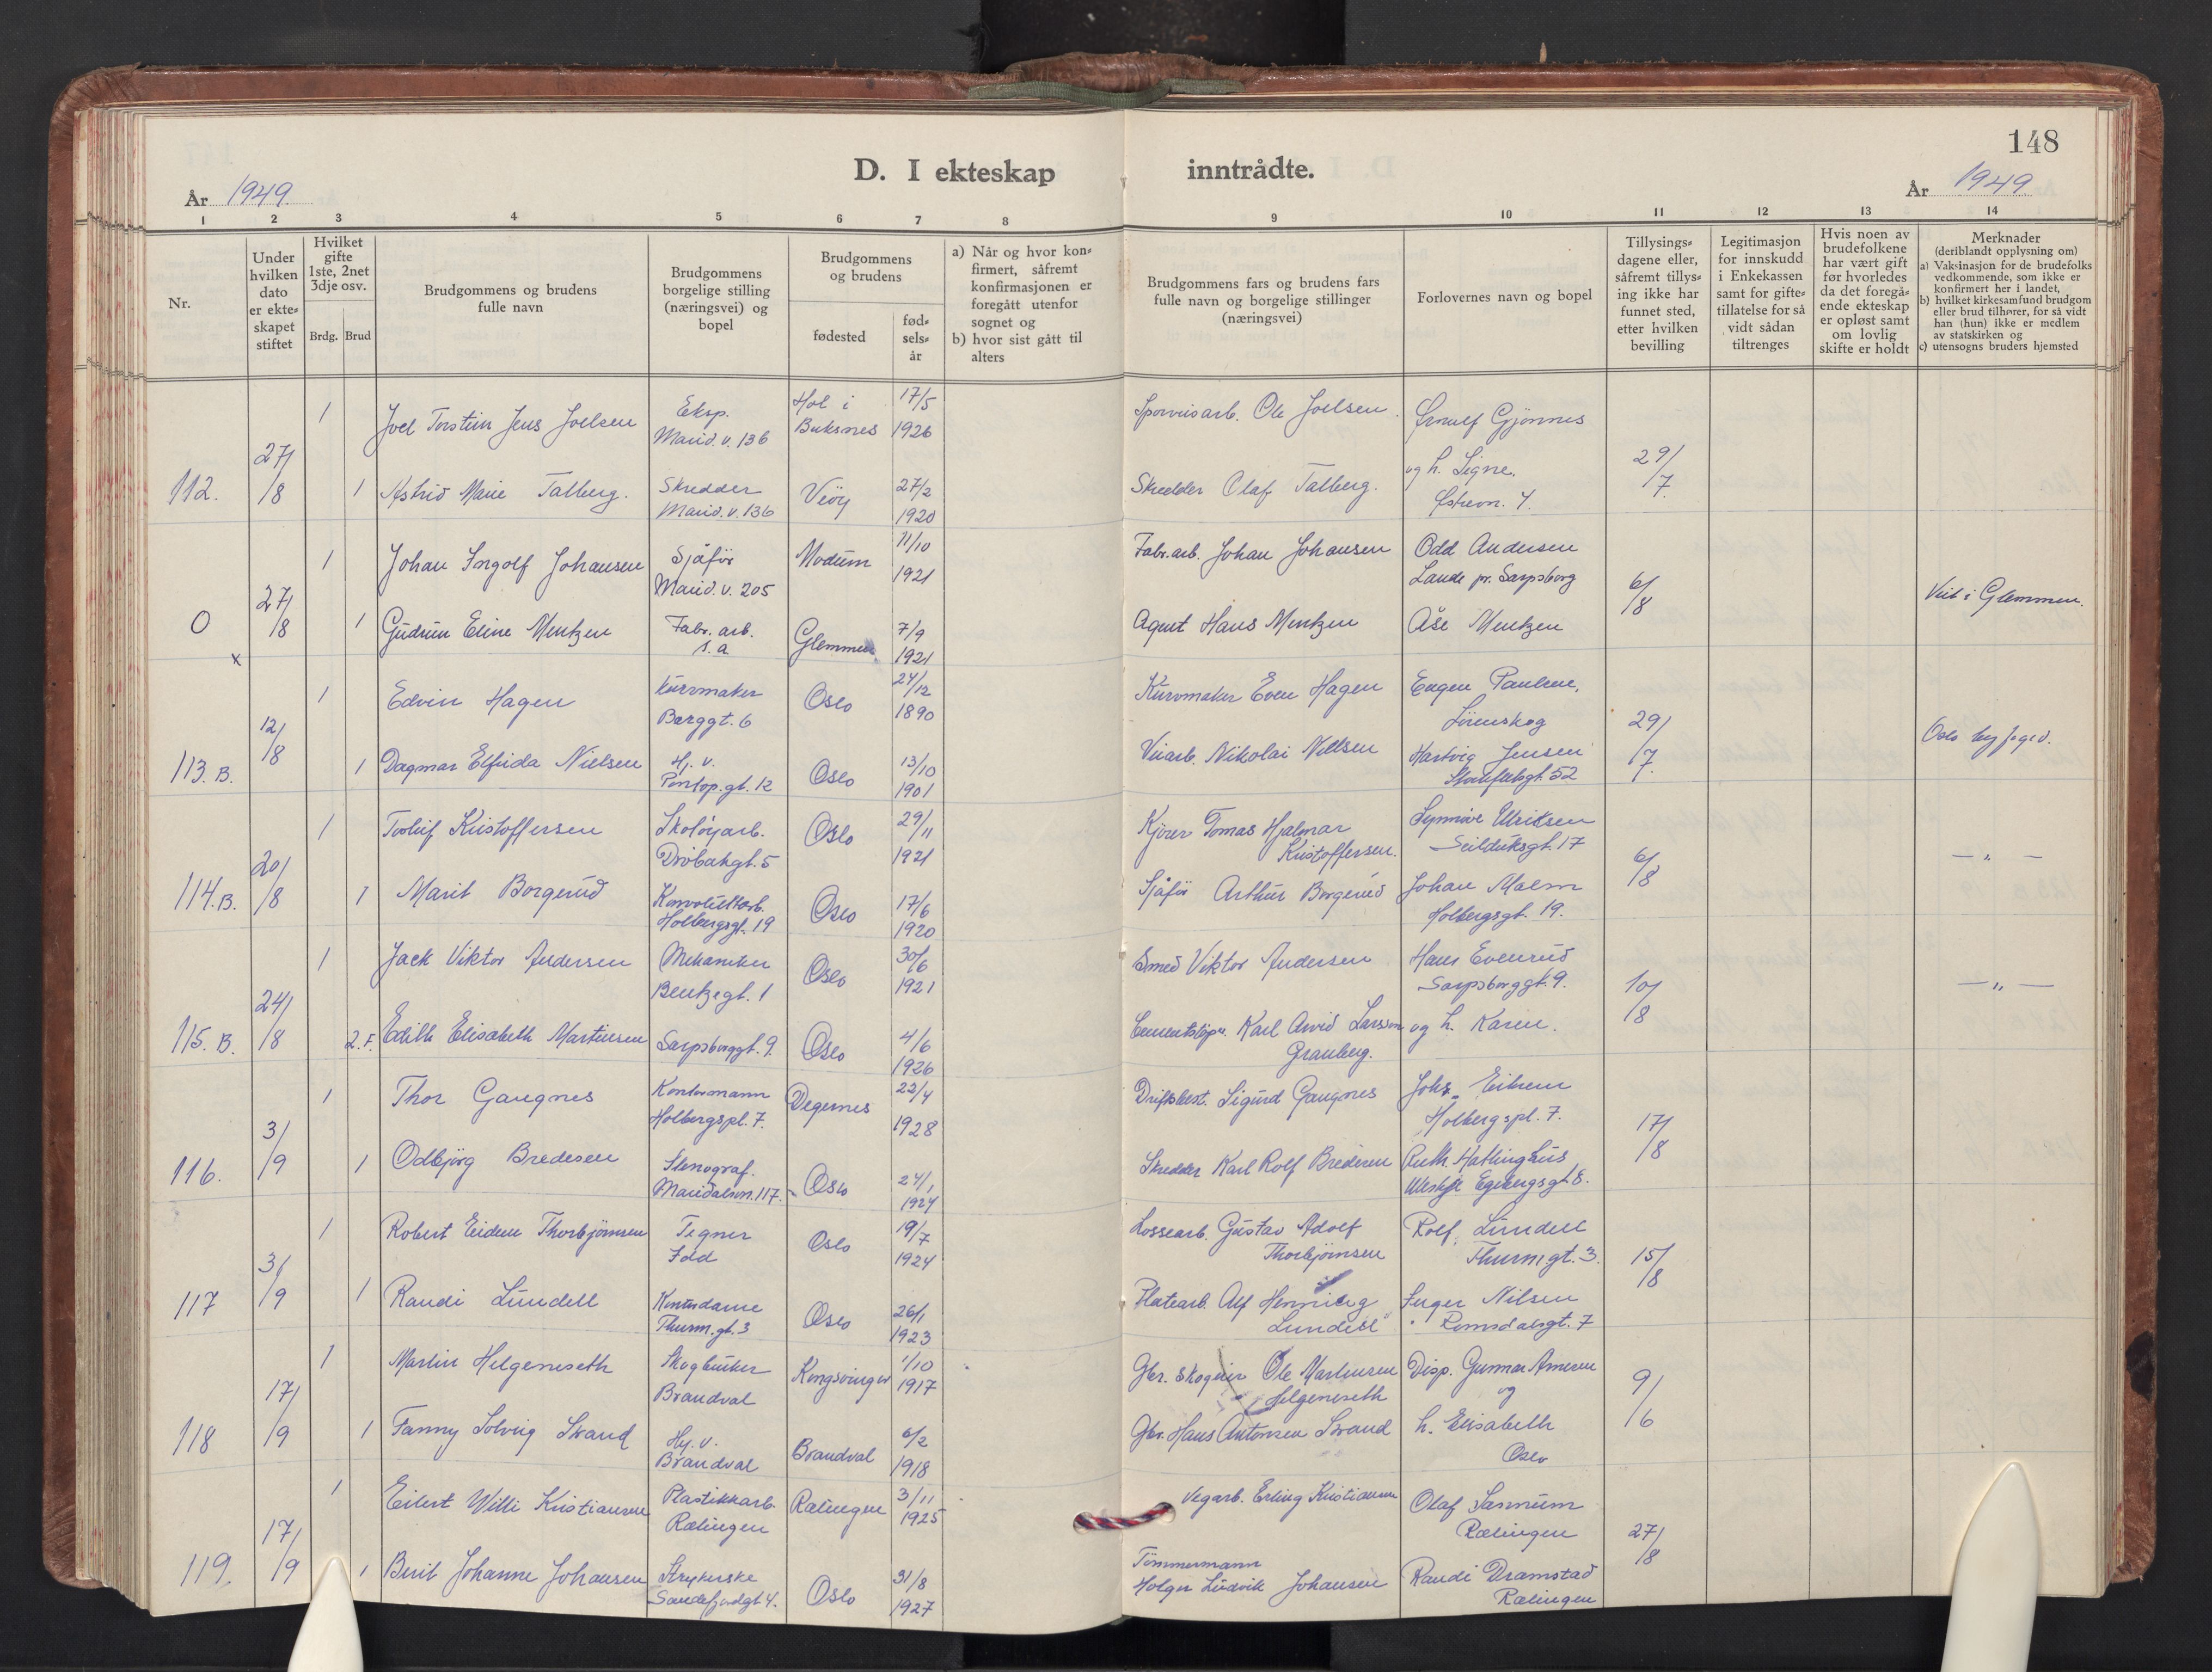 148
D. I ekteskap inntrådte.
År 1949
År 1949
1 2 3 4 5 6 7 8 9 10 11 12 13 14
Nr.
Under
hvilken
dato
er ekte-
skapet
stiftet
Hvilket
gifte
1ste, 2net
3dje osv.
Brdg. Brud
Brudgommens og brudens
fulle navn
Brudgommens
borgelige stilling
(næringsvei) og
bopel
Brudgommens
og brudens
fødested
fød-
sels-
år
a) Når og hvor kon-
firmert, såfremt
konfirmasjonen er
foregått utenfor
sognet og
b) hvor sist gått til
alters
Brudgommens fars og brudens fars
fulle navn og borgelige stillinger
(næringsvei)
Forlovernes navn og bopel
Tillysings-
dagene eller,
såfremt tillys-
ing ikke har
funnet sted,
etter hvilken
bevilling
Legitimasjon
for innskudd
i Enkekassen
samt for gifte-
tillatelse for så
vidt sådan
tiltrenges
Hvis noen av
brudefolkene
har vært gift
før hvorledes
da det foregå-
ende ekteskap
er opløst samt
om lovlig
skifte er holdt
Merknader
(deriblandt opplysning om)
a) Vaksinasjon for de brudefolks
vedkommende, som ikke er
konfirmert her i landet,
b) hvilket kirkesamfund brudgom
eller brud tilhører, for så vidt
han (hun) ikke er medlem
av statskirken og
c) utensogns bruders hjemsted
112. 27/8
1 Joel Torstein Jens Joelsen
Eksp.
Marid. v. 136
Hol i
Buksnes
17/5
1926
Ole Joelsen.
Gjønnes
og h. Signe.
29/7
1 Astrid Marie Talberg.
Skredder
Marid. v. 136
Veøy
27/2
1920
Skredder Olaf Talberg.
0 27/8
x
1 Johan Ingolf Johansen
Sjåfør
Marid. v. 205
Modum
11/10
1921
Fabr. arb. Johan Johansen
Odd Andersen
Lande pr. Sarpsborg
6/8
Viet i Glemmen.
1 Gudrun Eline Mentzen
Fabr. arb.
s. a
Glemmen
7/9
1921
Agent Hans Mentzen
Åse Mentzen
113. B. 12/8
1 Edvin Hagen
Kurvmaker
Berggt. 6
Oslo
24/12
1890
Kurvmaker Even Hagen
Eugen Paulsen,
Lørenskog
29/7
Oslo byfogd.
1 Dagmar Elfrida Nielsen
Hj. v.
Pontop. gt. 12
Oslo
13/10
1901
Nikolai Nilsen
Hartvig Jensen
114. B. 20/8
1 Torleif Kristoffersen
Skotøyarb.
Drøbakgt. 5
Oslo
29/11
1921
Kjører Tomas Hjalmar
Kristoffersen.
Synnøve Ulriksen
Seilduksgt. 17
6/8
— „ —
1 Marit Borgerud
Konvoluttarb.
Holbergsgt. 19
Oslo
17/6
1920
Sjåfør Arthur Borgerud
Johan Malm
Holbergsgt. 19.
115. B. 24/8
1 Jack Viktor Andersen
Mekaniker
Bentzegt. 1
Oslo
30/6
1921
Smed Viktor Andersen
Hans Evenrud
Sarpsborggt. 9.
10/8
— „ —
2. F. Edith Elisabeth Martinsen
Sarpsborggt. 9.
Oslo
4/6
1926
Karl Arvid Larsson
Granberg.
og h. Karen.
116. 3/9
1 Thor Gangnes
Kontormann
Holbergspl. 7.
Degernes
22/4
1928
Driftsbest. Sigurd Gangnes
Johs. Eitrem
Holbergspl. 7.
17/8
1 Odbjørg Bredesen
Stenograf.
Maridalsvn. 117.
Oslo
24/1
1924
Skredder Karl Rolf Bredesen
Ruth Hallinghus
117 3/9
1 Robert Eidem Thorbjørnsen
Tegner
Idd
Oslo
19/7
1924
Lossearb. Gustav Adolf
Thorbjørnsen
Rolf Lundell
Thurm. gt. 3.
15/8
1 Randi Lundell
Kontordame
Thurm. gt. 3
Oslo
26/1
1923
Platearb. Alf Henning
Lundell
Inger Nilsen
Romsdalsgt. 7
118 17/9
1 Martin Helgeneseth
Skogbruker
Brandval
Kongsvinger
1/10
1917
Gbr. Ole Martinsen
Helgeneseth
Disp. Gunnar Arnesen
og
9/6
1 Fanny Solveig Strand
Hj. v.
Brandval
Brandval
6/2
1918
Gbr. Hans Antonsen Strand
h. Elisabeth
Oslo
119. 17/9
1 Eilert Willi Kristiansen
Plastikkarb.
Rælingen
Rælingen
3/11
1925
Vegarb. Erling Kristiansen
Olaf Sannum
Rælingen
27/8
1 Berit Johanne Johansen
Strykerske
Sandefjordgt. 4.
Oslo
31/8
1927
Tømmermann
Holger Ludvik Johansen
Randi Dramstad
Rælingen